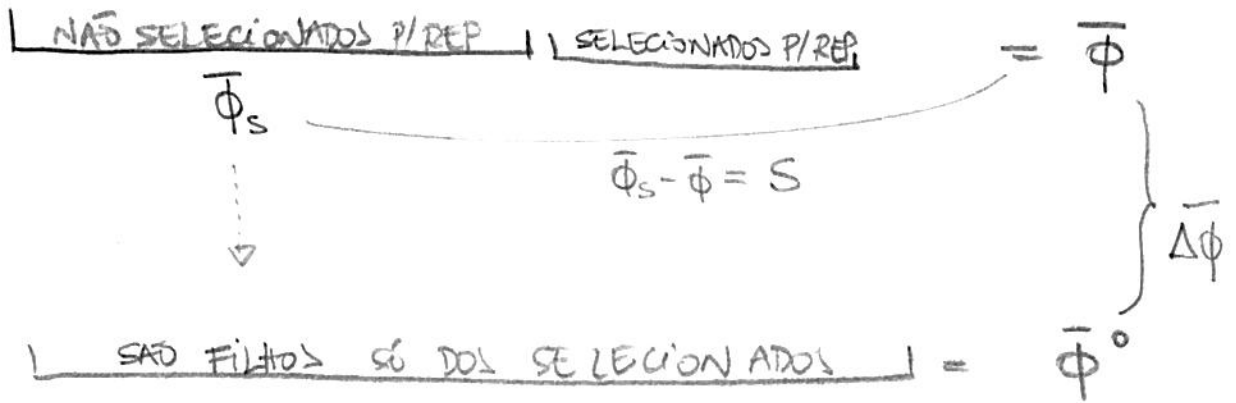 NÃO SELECIONADOS P/REP SELECIONADOS P/REP. = ϕ̄
ϕ̄s
ϕ̄s - ϕ̄ = S
Δϕ̄
SÃO FILHOS SÓ DOS SELECIONADOS = ϕ̄°